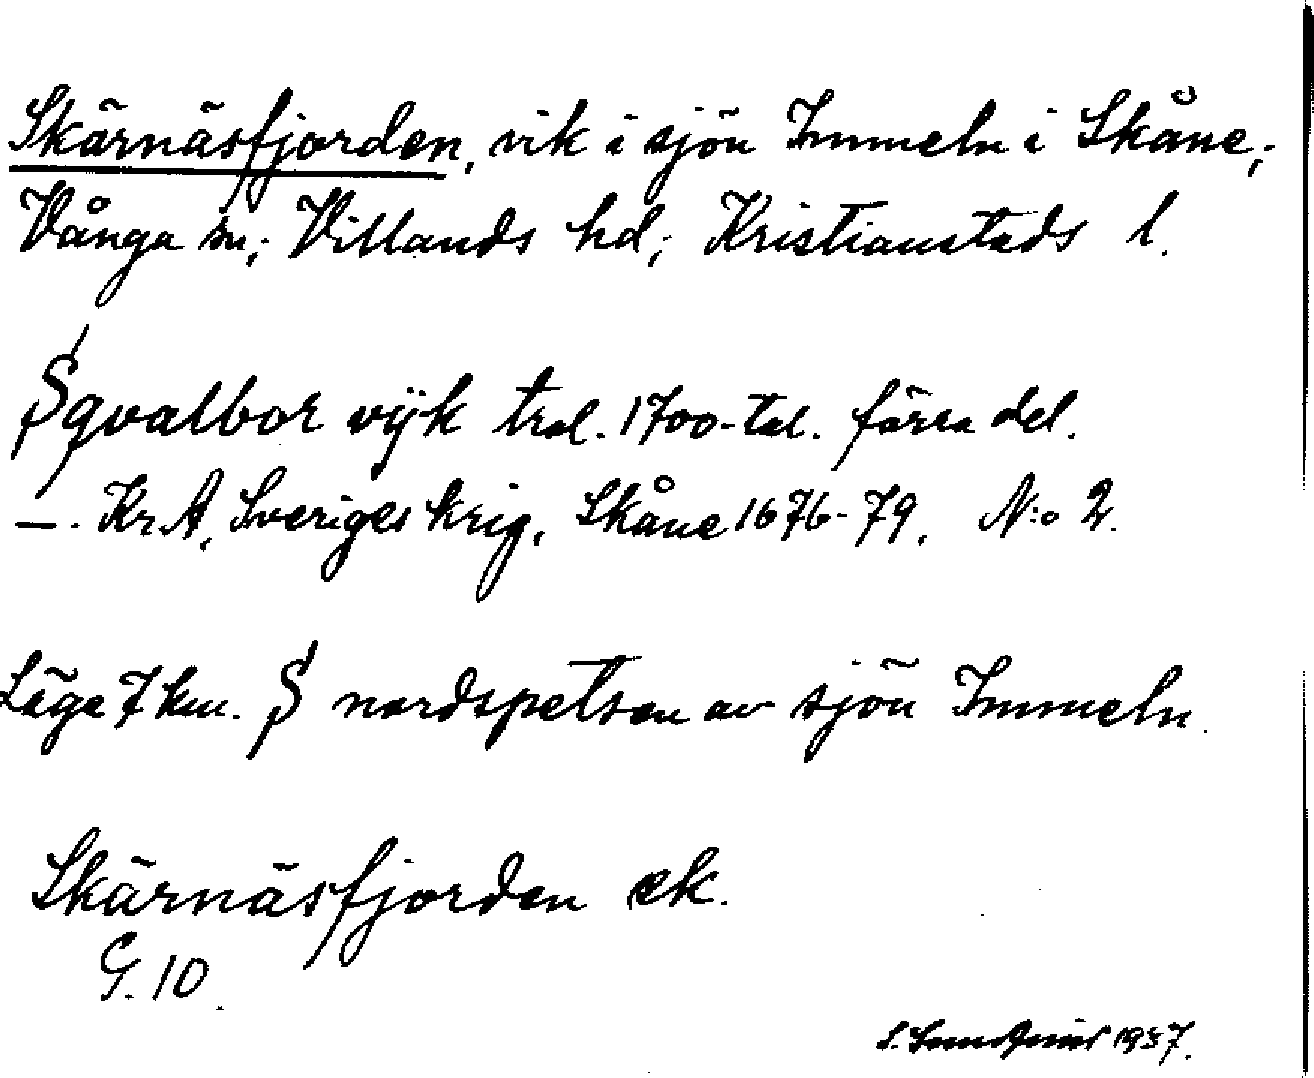 Skärnäsfjorden, vik i sjön Immeln i Skåne;
Vånga sn; Villands hd; Kristianstads l.
Sqvalbor vÿk trol. 1700-tal. förra del.
—. Kr A, Sveriges krig, Skåne 1676-79. N:o 2.
Läge 7 km. S nordspetsen av sjön Immeln.
Skärnäsfjorden ek.
G. 10.
1937.